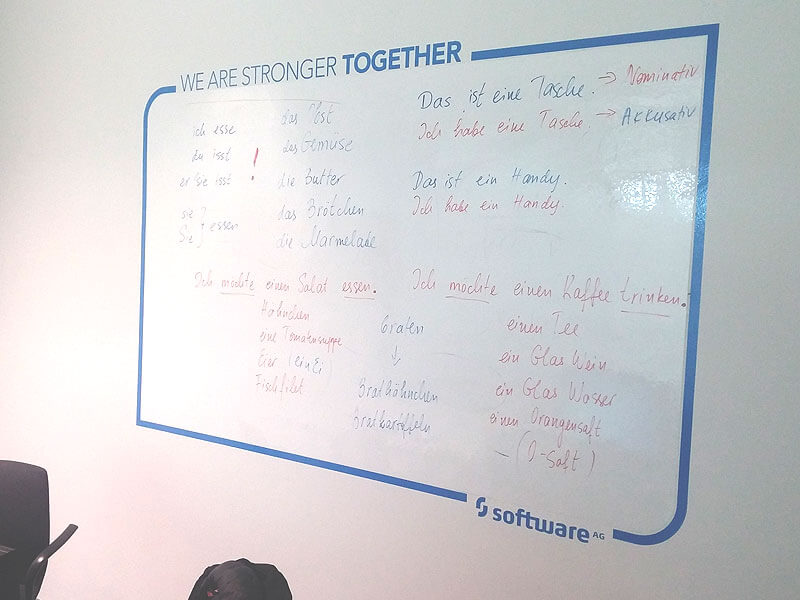 WE ARE STRONGER TOGETHER
ich esse
du isst !
er sie isst
sie
Sie } essen
das Obst
das Gemüse
die Butter
das Brötchen
die Marmelade
Das ist eine Tasche. → Nominativ
Ich habe eine Tasche. → Akkusativ
Das ist ein Handy.
Ich habe ein Handy.
Ich möchte einen Salat essen.
Hähnchen
eine Tomatensuppe
Eier (ein Ei)
Fischfilet
braten
↓
Brathähnchen
Bratkartoffeln
Ich möchte einen Kaffee trinken.
einen Tee
ein Glas Wein
ein Glas Wasser
einen Orangensaft
– (O-Saft)
software AG